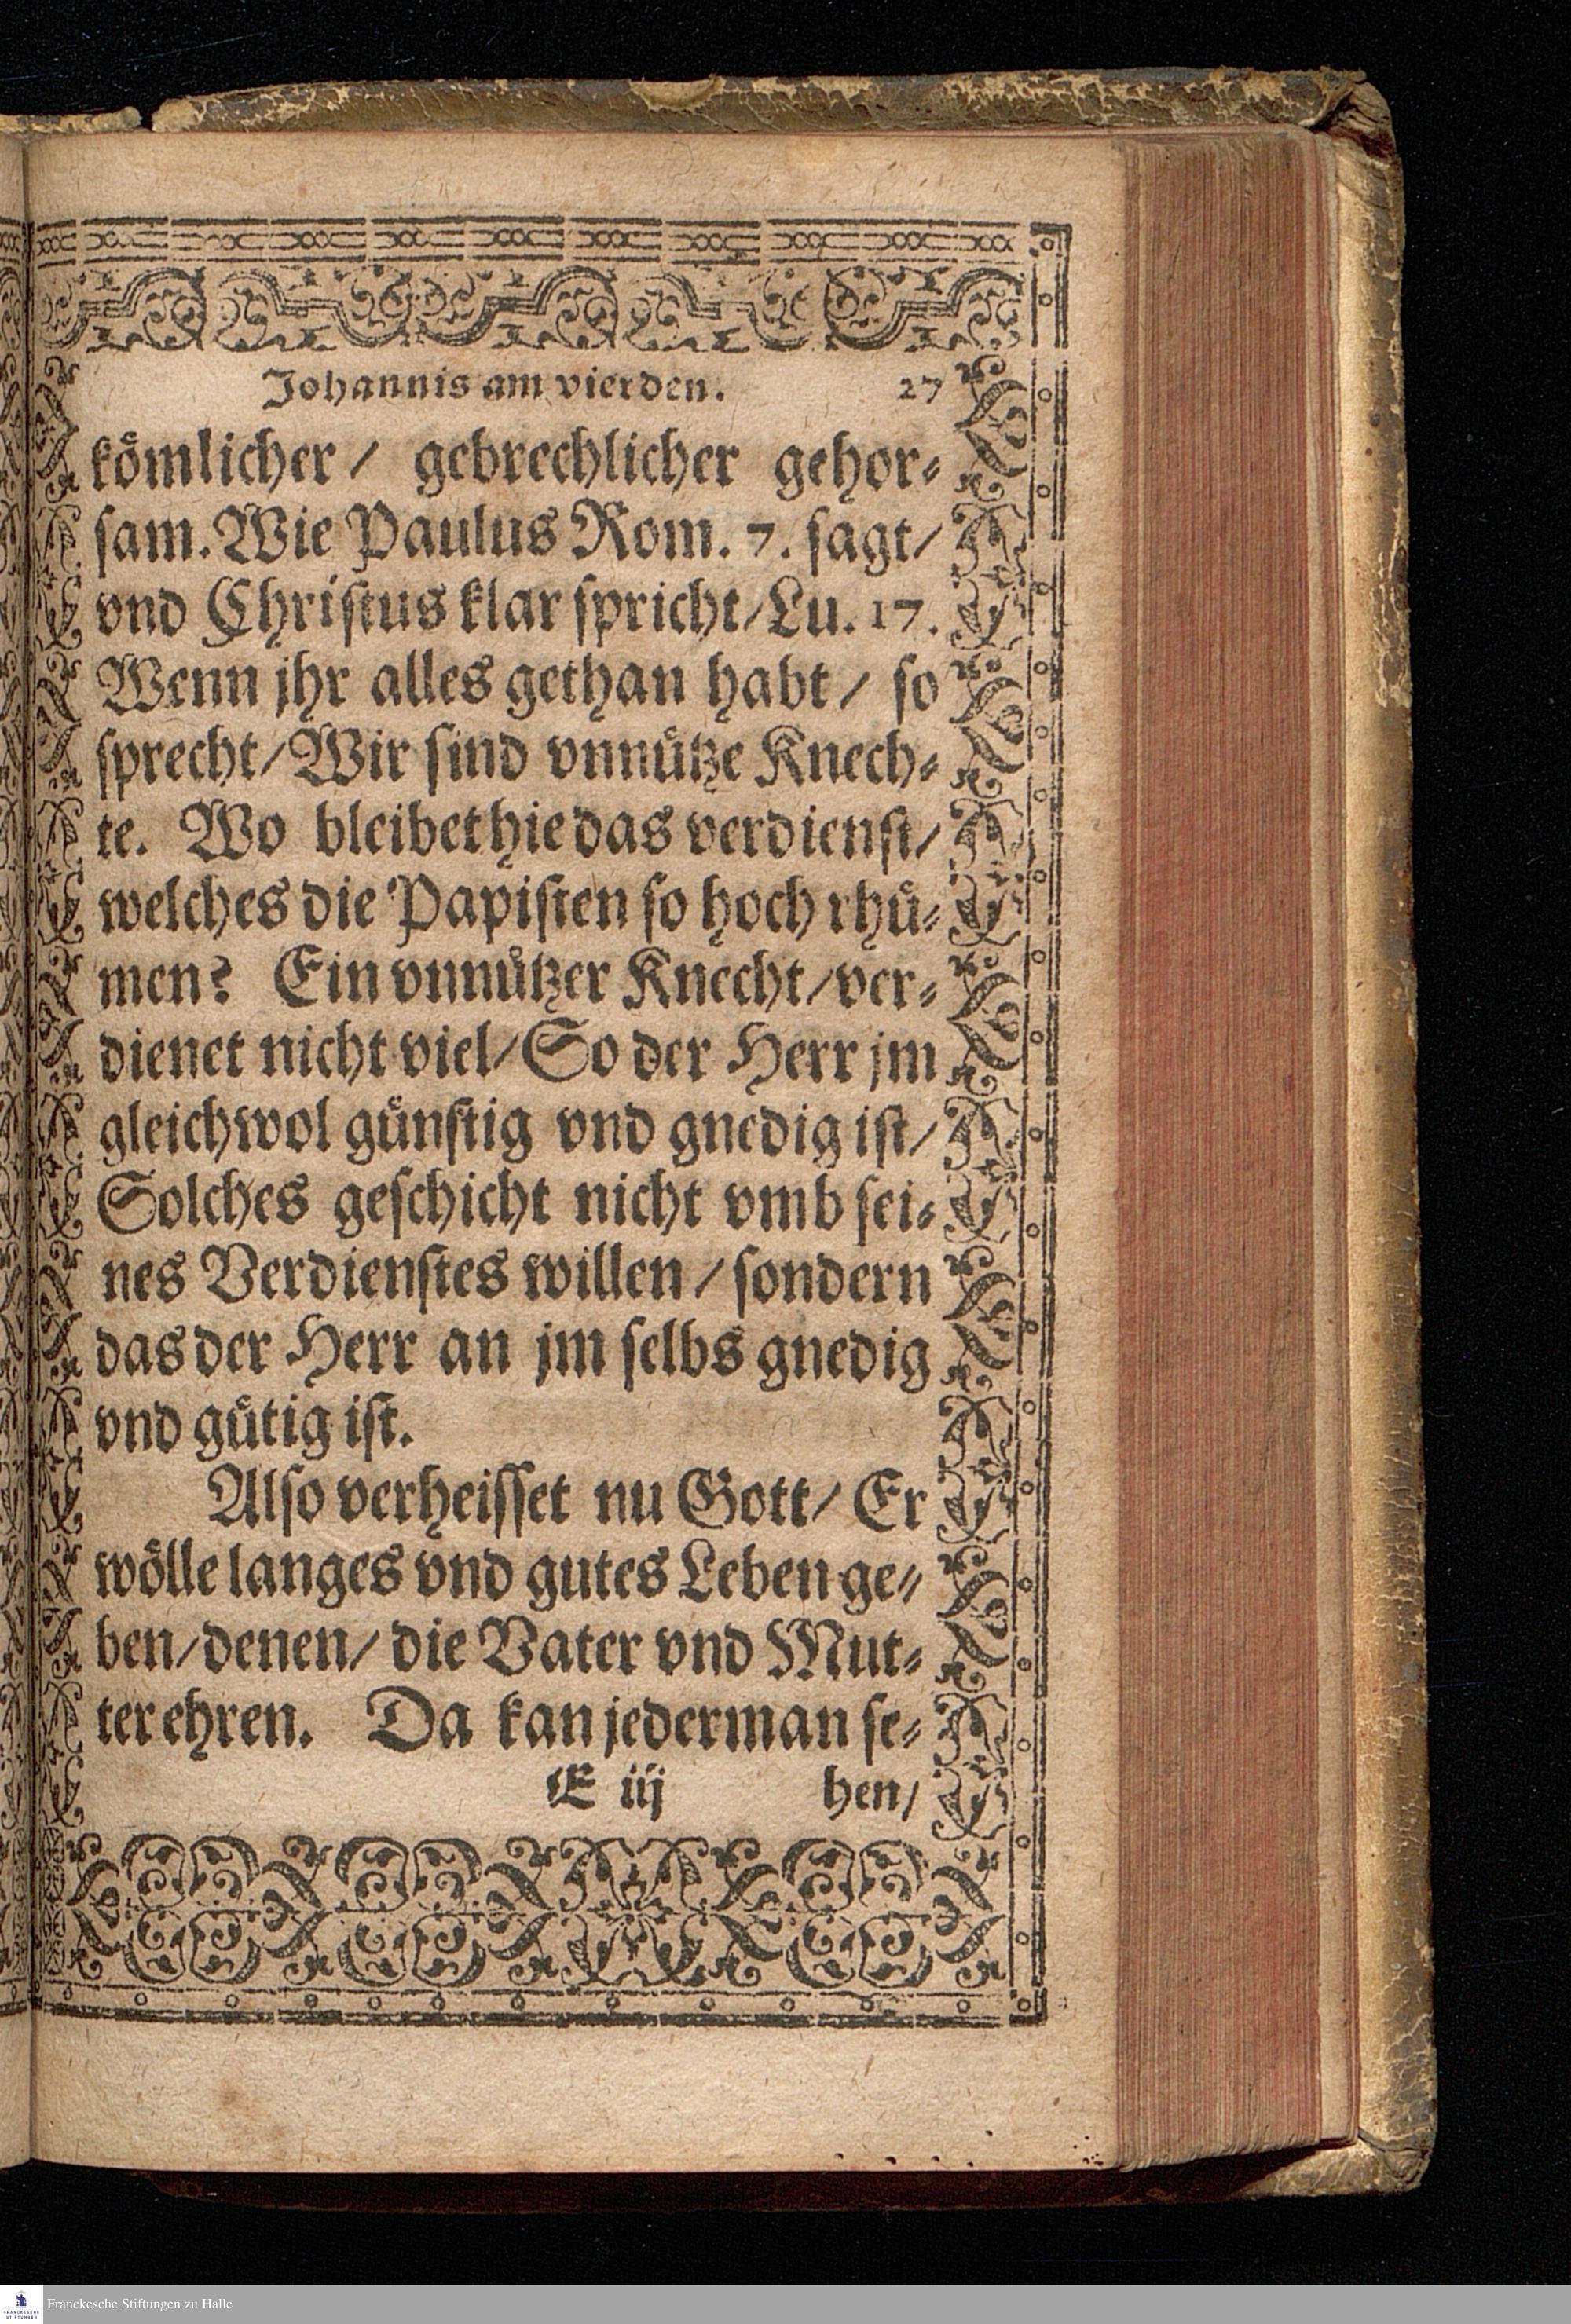 Johannis am vierden. 27
koͤmlicher / gebrechlicher gehor⸗
ſam. Wie Paulus Rom. 7. ſagt /
vnd Chriſtus klar ſpricht / Lu. 17.
Wenn jhr alles gethan habt / ſo
ſprecht / Wir ſind vnnuͤtze Knech⸗
te. Wo bleibet hie das verdienſt /
welches die Papiſten ſo hoch rhuͤ⸗
men? Ein vnnuͤtzer Knecht / ver⸗
dienet nicht viel / So der Herr jm
gleichwol guͤnſtig vnd gnedig iſt /
Solches geſchicht nicht vmb ſei⸗
nes Verdienſtes willen / ſondern
das der Herr an jm ſelbs gnedig
vnd guͤtig iſt.
Alſo verheiſſet nu Gott / Er
woͤlle langes vnd gutes Leben ge⸗
ben / denen / die Vater vnd Mut⸗
ter ehren. Da kan jederman ſe⸗
E iij hen /
FRANCKESCHE STIFTUNGEN
Franckesche Stiftungen zu Halle